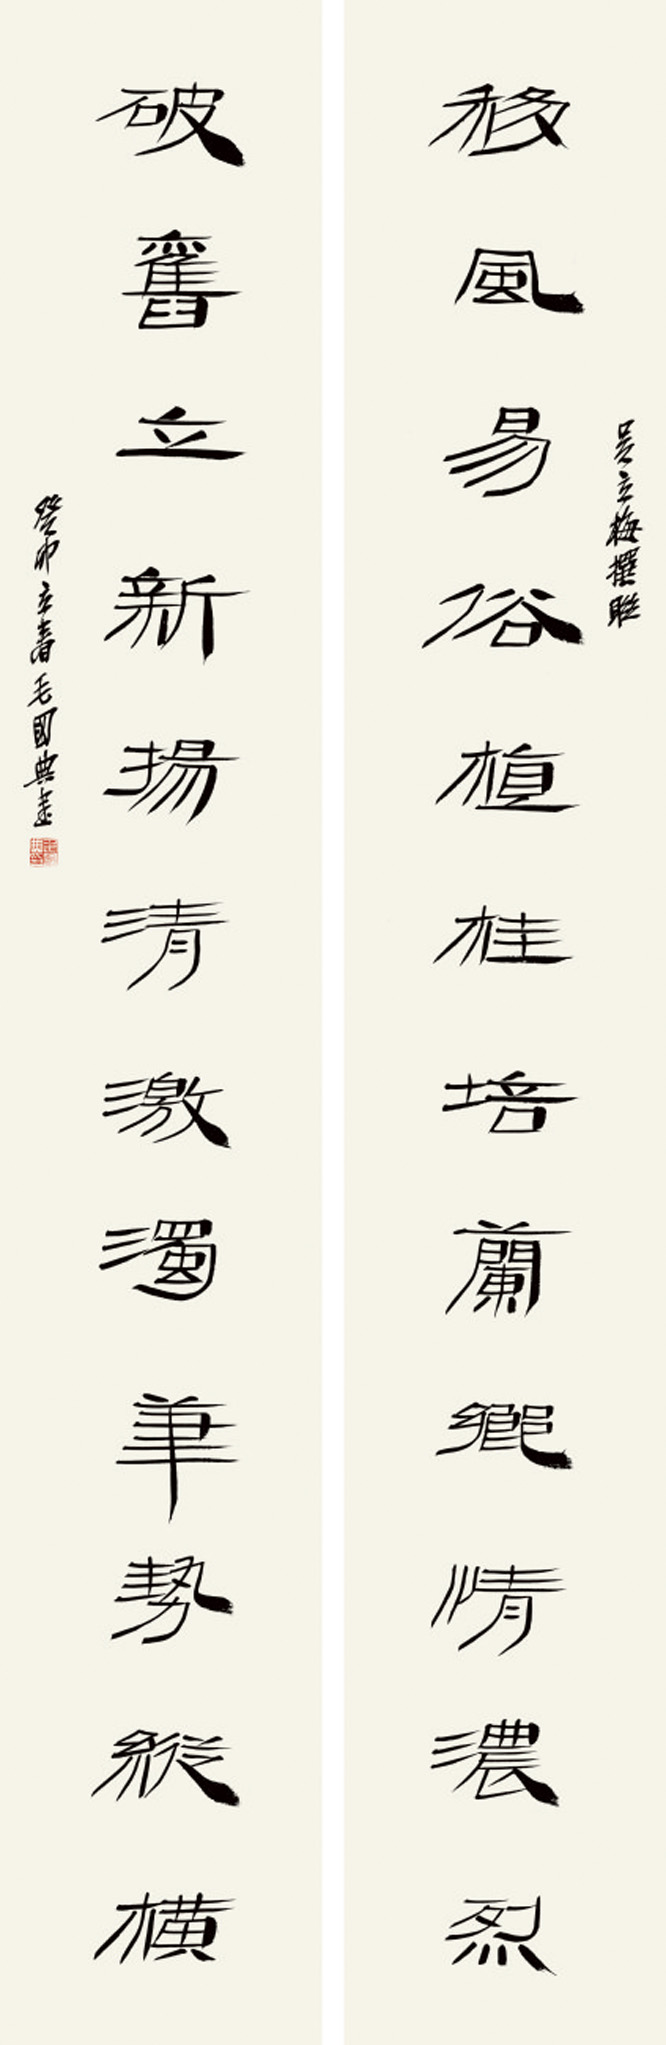 移風易俗植桂培蘭鄉情濃烈
吴立梅撰联
破舊立新揚清激濁筆勢縱橫
癸卯立春毛國典書